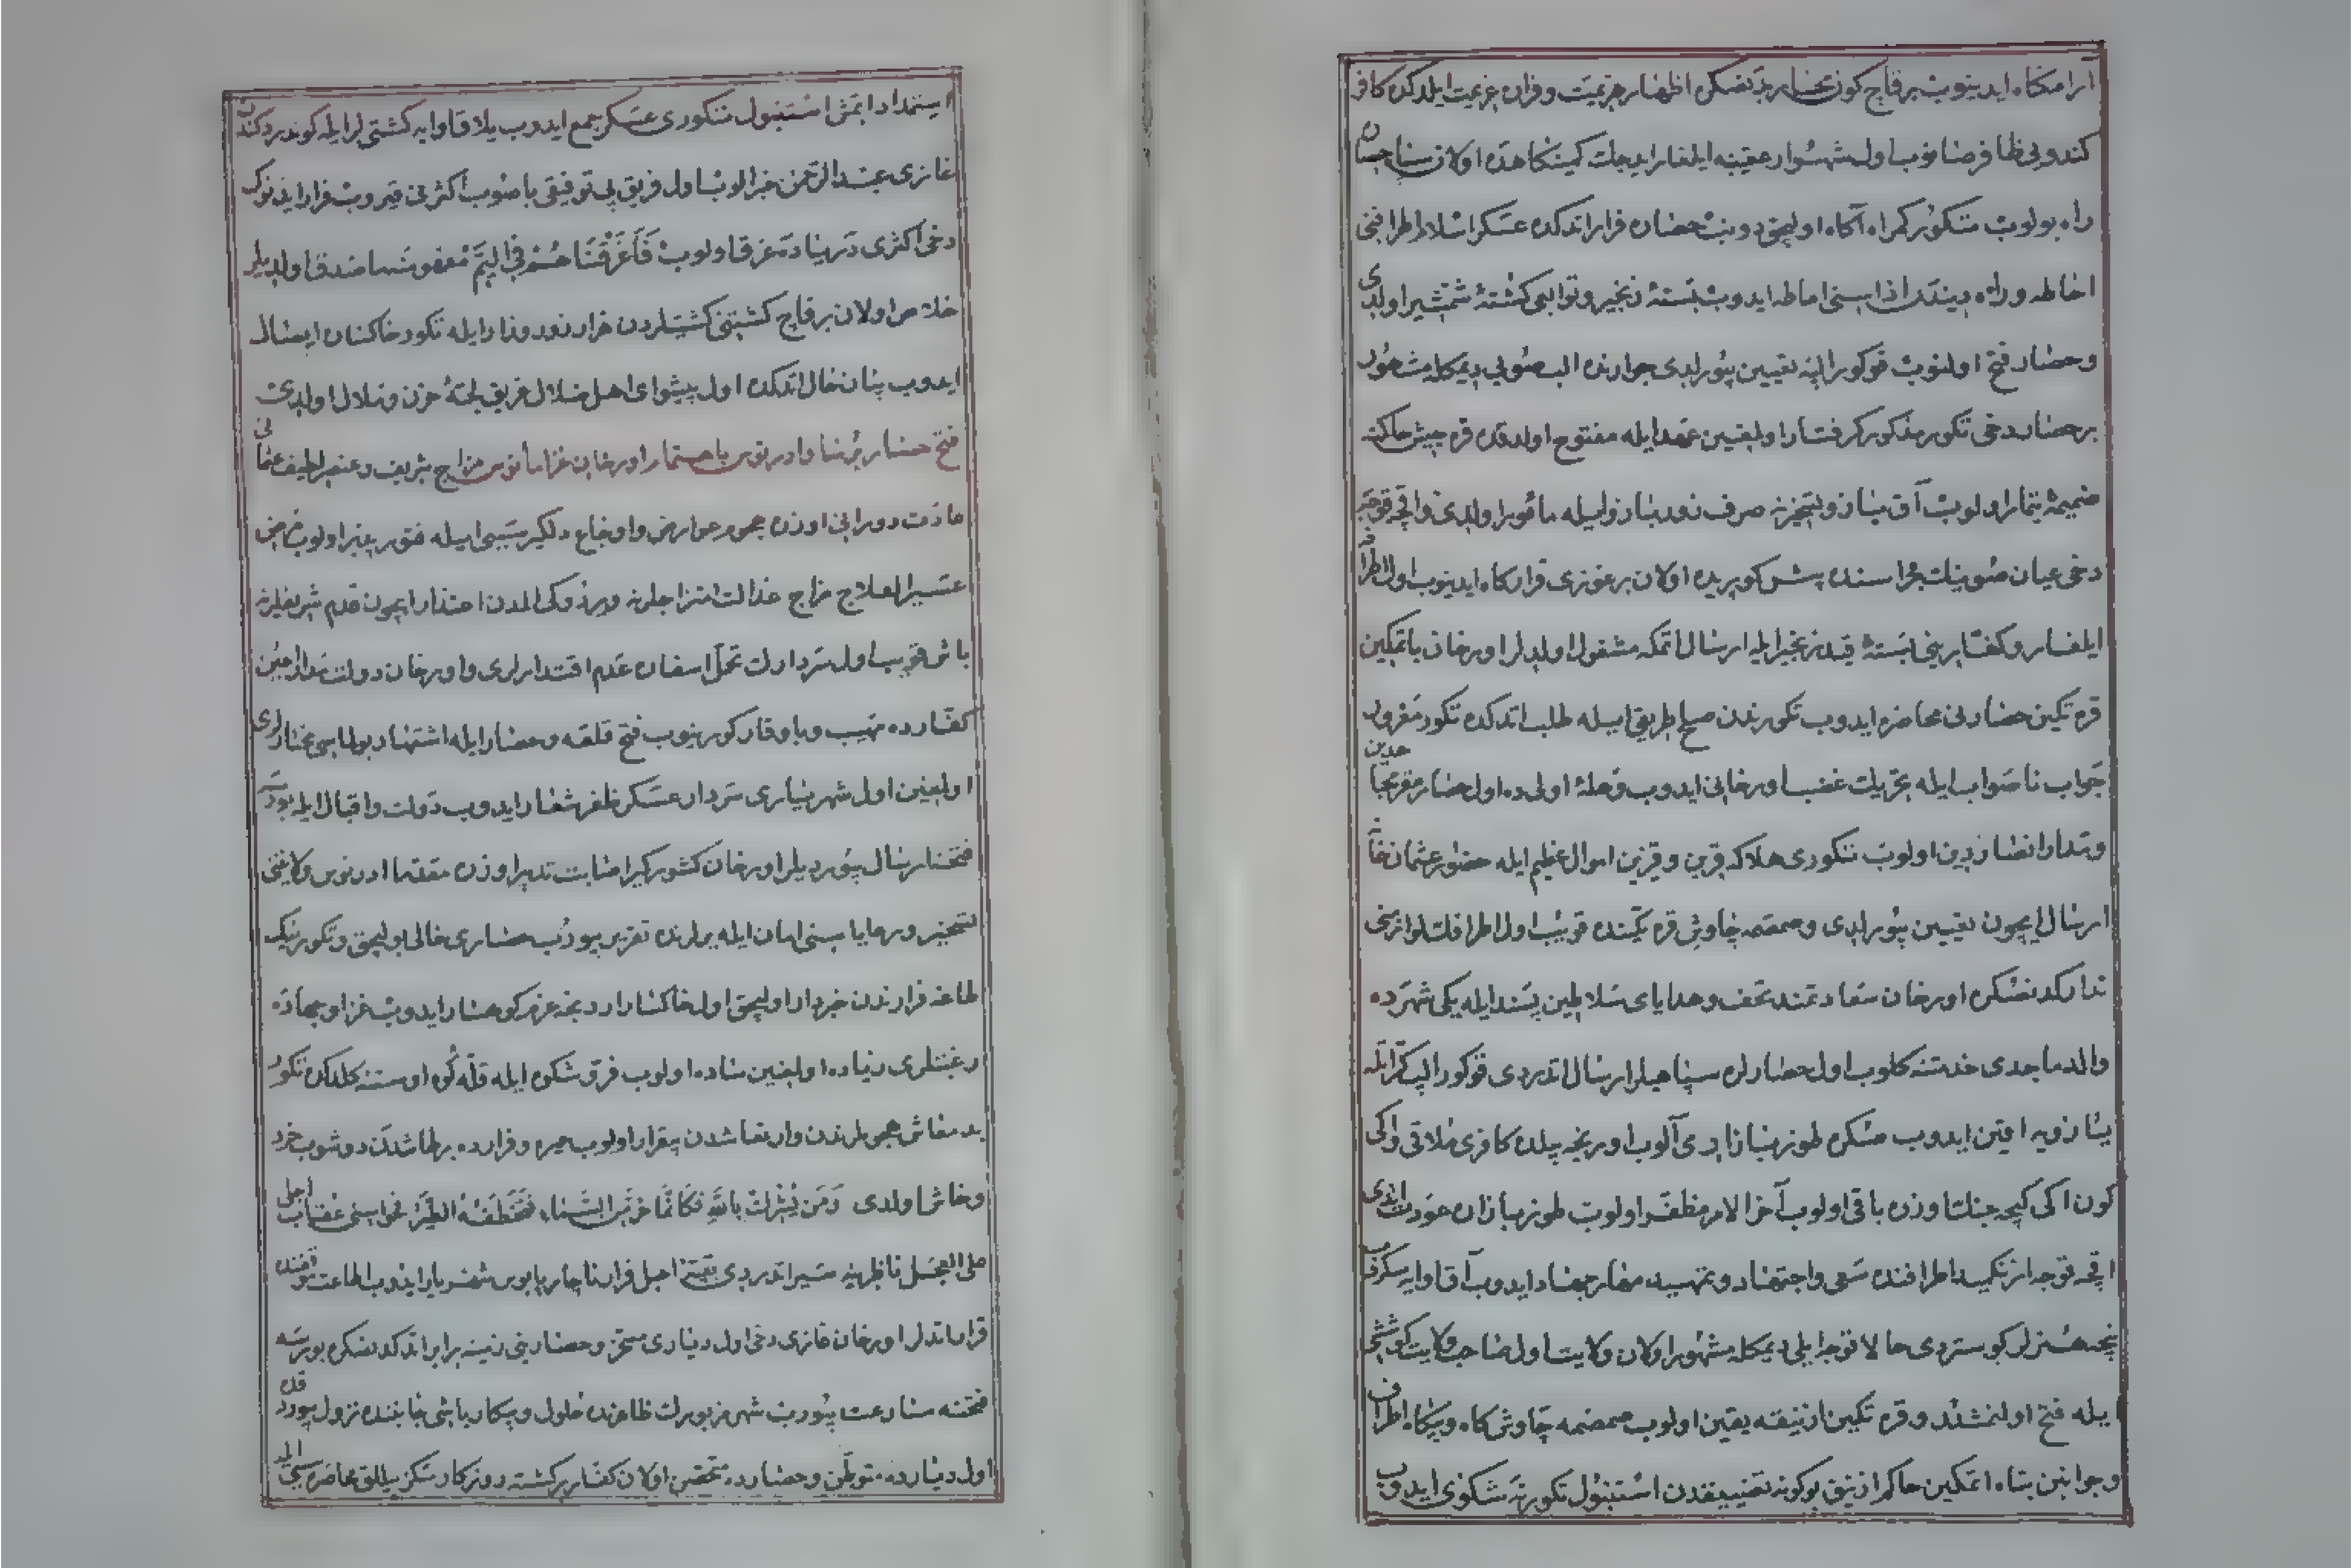 آرامکاه ایدینوب برقاچ کون محاربه‌دنصکره اظهار هزیمت و فراره عزیمت ایلدکده کافر
کندویی ظافر صانوب اول شهسوار عقبنه ایلغار ایدیجك کمینکاهده اولان سپاه
راه بولوب تنکور کمراه آکاه اولیجق دونب حصاره فرار اتدکده عسکر اسلام اطرافنی
احاطه و راه اماطه ایدوب بستۀ زنجیر و توابعی کشتۀ شمشیر اولدی
و حصار فتح اولنوب قوکور الپه تعیین بیورلدی جوارنده الب صویی دیمکله مشهور
برحصار دخی تکور مذکور کرفتار اولیجق عهد ایله مفتوح اولدقده قره چپش حاکت
ضمیمۀ تیمار اولوب آق یازو تسخیرنه صرف زور بازو ایله مأمور اولدی واقچه قوجه
دخی عیان صوینك مجراسنده بش کوپریده اولان برغوزی قرارکاه ایدینوب اول اطرافه
ایلغار و کفارینی بستۀ قید زنجیر ایله ارسال اتمکه مشغول اولدیلر اورخان باتمکین
قره تکین حصارنی محاصره ایدوب تکورندن صلح طریقی ایله طلب اتدکده تکور مغرور
جواب ناصواب ایله تحریك غضب اورخانی ایدوب وحلۀ اولی‌ده اول حصار مقر مجاهدین
و مدار انصار دین اولوب تنکوری هلاکه قرین و قیزین اموال عظیم ایله حضور عثمان خانه
ارسال ایچون تعیین بیورلدی و صمصمه چاوش قره تکینده قویب اول اطرافك لوازمنی
تدارکدنصکره اورخان سعادتمند تحف و هدایای سلاطین پسند ایله یکی شهرده
والد ماجدی خدمتنه کلوب اول حصارلره سپاهیلر ارسال اتدردی قوکور الپ کرّاتله
یازویه اقین ایدوب صکره طوزبازاری آلوب اوزنجه بیلده کافری ملاقی و اکی
کون اکی کیجه جنك اوزره باقی اولوب آخرالامر مظفر اولوب طوزبازاره عودت ایتدی
اقچه قوجه ازنکمید اطرافنده سعی و اجتهاد و تمهید مهار جهاد ایدوب آق اوایه سکردوب
نیجه هنرلر کوستردی حالا قوجه ایلی دیمکله مشهور اولان ولایت اول صاحب ولایت
ایله فتح اولنمشدر و قره تکین ازنیقه یقین اولوب صمصمه چاوش کاه و بیکاه اطراف
و جوانبن تباه اتمکین حاکم ازنیق بوکونه تضییقدن استنبول تکورینه شکوی ایدوب
استمداد اتمش استنبول تنکوری عسکر جمع ایدوب یلاق اوایه کشتیلر ایله کوندردکن
غازی عبدالرحمن خبر الوب اول فریق بی توفیقی باصوب اکثرنی قیروب فرار ایدنوك
دخی اکثری دریاده غرق اولوب فَاَغْرَقْنَاهُمْ فِی الْیَمِّ مفهومنه ماصدق اولدیلر
خلاص اولان برقاچ کشینی کشتیلردن هزار زور و زار ایله تکور خاکساره ایصال
ایدوب بیان حال اتدکده اول پیشوای اهل ضلال غریق لجۀ حزن و ملال اولدی
فتح حصار برسا و ادرنوس باهتمام اورخان غزا مأنوس مزاج شریف و عنصر لطیف عثمانی
عادت دورانی اوزره هجوم عوارض و اوجاع دلکیر سببی ایله فتورپذیر اولوب مرض
عسیر العلاج مزاج عدالت امتزاجلرنه ویردوکی المدن اعتذار ایچون قدم شریفلرنه
باش قویب اول سردارك تحمل اسفاره عدم اقتدارلری و اورخان دولتمدارك عین
کفارده مهیب و باوقار کورینوب فتح قلعه و حصار ایله اشتهار بولماسی مختارلری
اولیجق اول شهریاری سردار عسکر ظفر شعار ایدوب دولت و اقبال ایله بورسه
فتحنه ارسال بیوردیلر اورخان کشورکیر اصابت تدبیر اوزره مقدما ادرنوس ولایتنی
تسخیر و رعایاسنی امان ایله یرلرنده تقریر بیورب حصاری خالی اولیجق و تکورینك
طاغه فرارندن خبردار اولیجق اول خاکسار اردنجه عزم کوهسار ایدوب غزا و جهاده
رغبتلری زیاده اولیجق پیاده اولوب فرّ و شکوه ایله قلّه کوه اوستنه کلدکده تکور
بدمعاش هجوملرندن وارتعاشدن بیقرار اولوب حیره و فرارده برطاشدن دوشوب خرد
وخاش اولدی وَمَنْ یُشْرِكْ بِاللّٰهِ فَكَاَنَّمَا خَرَّ مِنَ السَّمَاءِ فَتَخْطَفُهُ الطَّیْرُ فحواسنی عقاب اجل
علی العجل ناظرینه سیر اتدردی بقیة اجل فرار ناچار پابوس شهریار ایدوب اطاعت
قرار اتدیلر اورخان غازی دخی اول دیاری مسخر و حصارینی زمینه برابر اتدکدنصکره بورسه
فتحنه مسارعت بیورب شهر مزبورك ظاهرنده حلول و پیکار باشی جانبنده نزول بیوردقده
اول دیارده متوطن و حصارده متحصن اولان کفار برکشته روزکار سکز ییللق محاصره سی